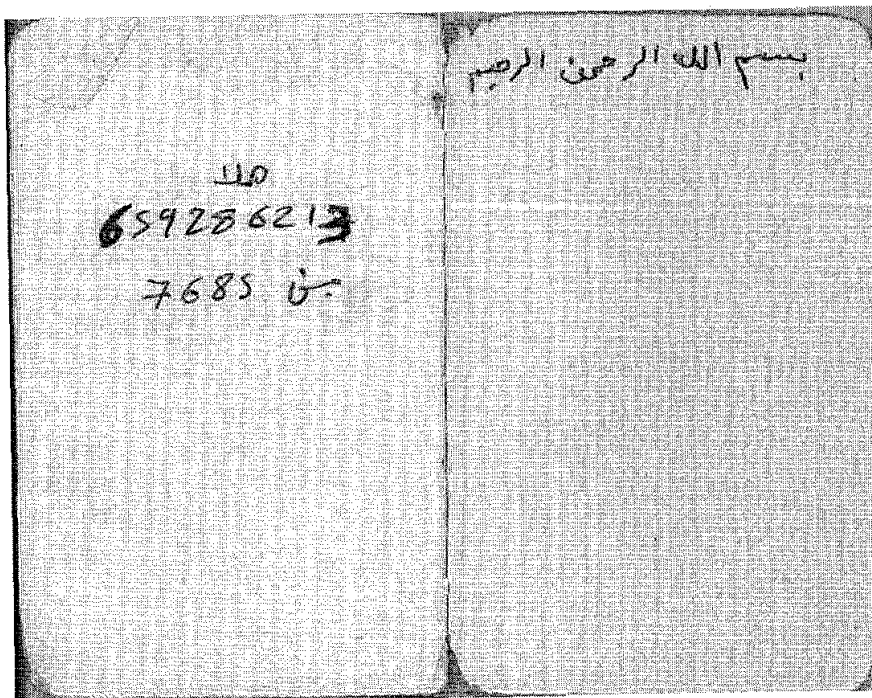 بسم الله الرحمن الرحيم
ملا
659286213
7685 بن